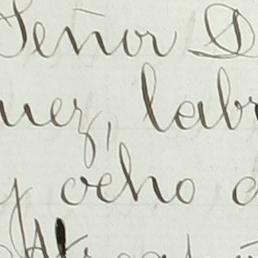 Señor D
uez, labr
y ocho